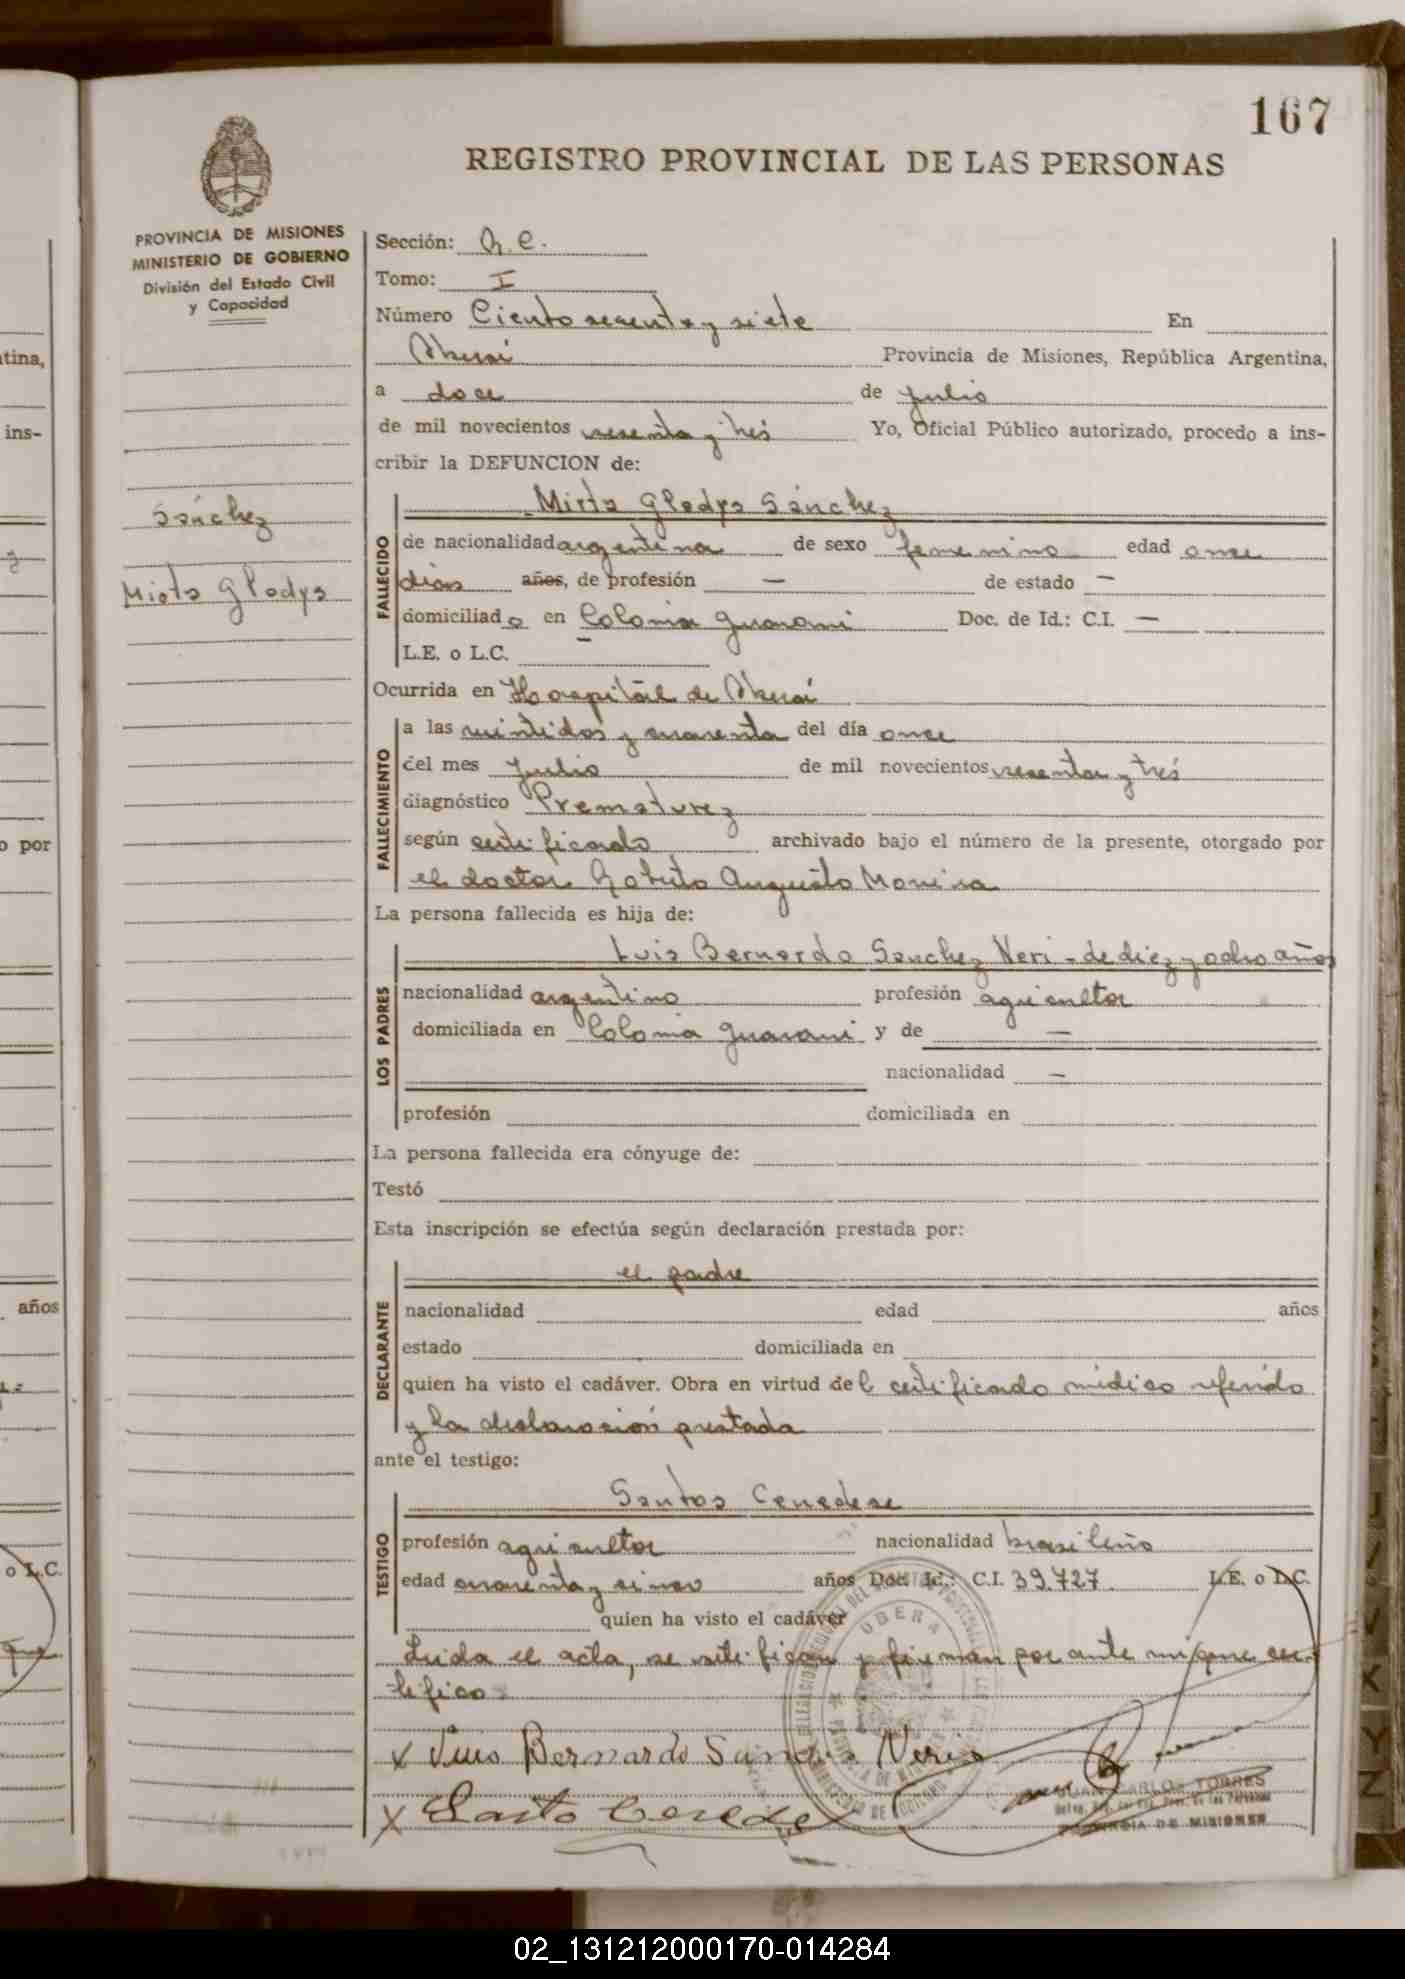 167
REGISTRO PROVINCIAL DE LAS PERSONAS
PROVINCIA DE MISIONES
MINISTERIO DE GOBIERNO
División del Estado Civil
y Capacidad
Sánchez
Mirta Gladys
Sección:
Tomo: I
Número Ciento sesenta y siete En
Oberá Provincia de Misiones, República Argentina,
a doce de julio
de mil novecientos sesenta y tres Yo, Oficial Público autorizado, procedo a ins-
cribir la DEFUNCION de:
Mirta Gladys Sánchez
FALLECIDO
de nacionalidad argentina de sexo femenino edad once
días años, de profesión — de estado —
domiciliado en Colonia Guaraní Doc. de Id.: C.I. —
L.E. o L.C. —
Ocurrida en Hospital de Oberá
FALLECIMIENTO
a las veintidos y cuarenta del día once
del mes julio de mil novecientos sesenta y tres
diagnóstico Prematurez
según certificado archivado bajo el número de la presente, otorgado por
el doctor Roberto Augusto
La persona fallecida es hija de:
LOS PADRES
Luis Bernardo Sanchez Neri - de diez y ocho años
nacionalidad argentino profesión agricultor
domiciliada en Colonia Guaraní y de —
nacionalidad —
profesión domiciliada en
La persona fallecida era cónyuge de:
Testó
Esta inscripción se efectúa según declaración prestada por:
DECLARANTE
el padre
nacionalidad edad años
estado domiciliada en
quien ha visto el cadáver. Obra en virtud del certificado médico referido
y la declaración prestada
ante el testigo:
TESTIGO
Santos Cenedese
profesión agricultor nacionalidad brasileño
edad cuarenta y cinco años Doc. Id.: C.I. 39.727 L.E. o L.C.
quien ha visto el cadáver
Leida el acta, se ratifican y firman por ante mi que cer-
tifico
x Luis Bernardo Neris
x Santo
OBERA
PROVINCIA DE MISIONES
JUAN CARLOS TORRES
PROVINCIA DE MISIONES
tina,
ins-
o por
años
o L.C.
que
J
V
X
Y
Z
02_131212000170-014284